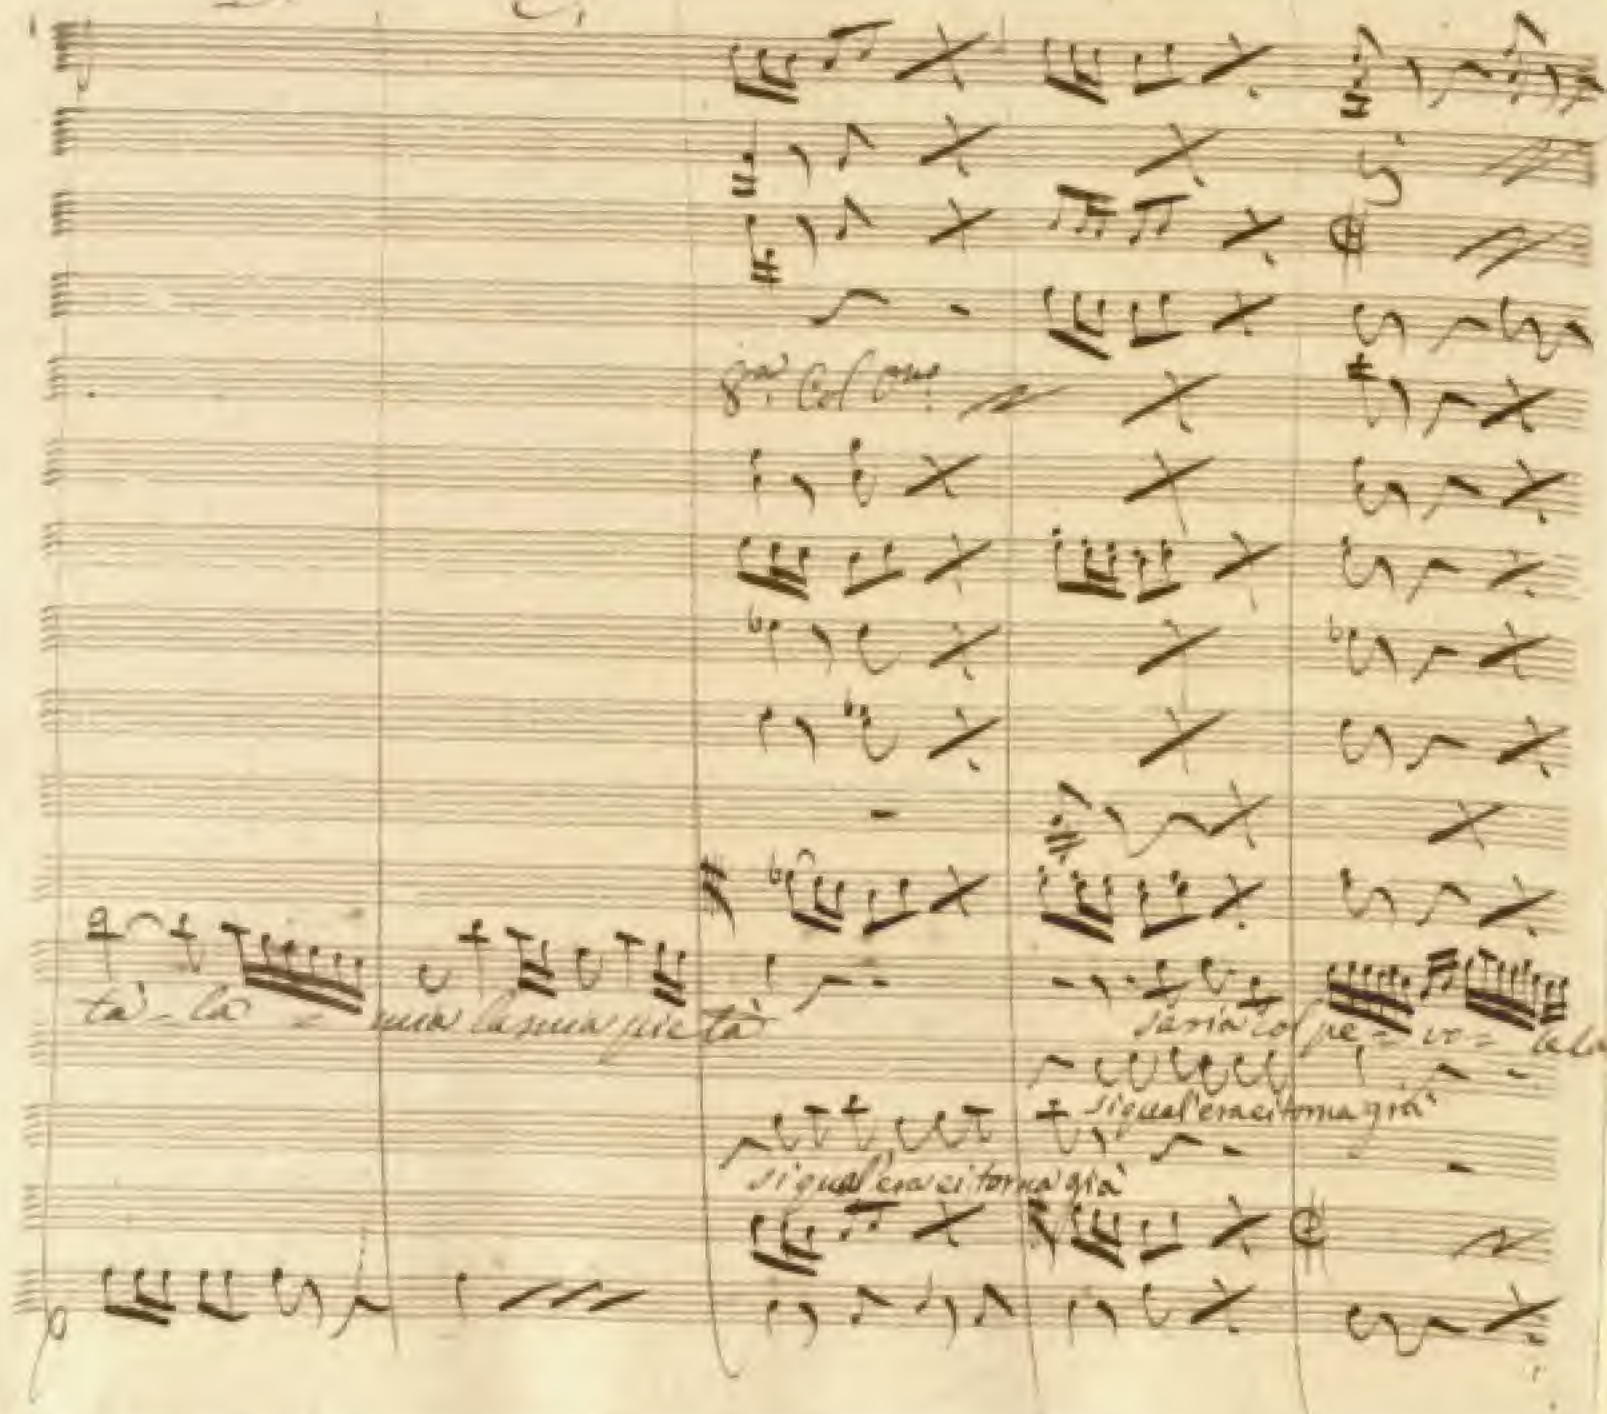 8.ª Col
tà - la - mia la mia pietà
saria colpe - vo - le la
si qual'era ei torna già
si qual'era ei torna già